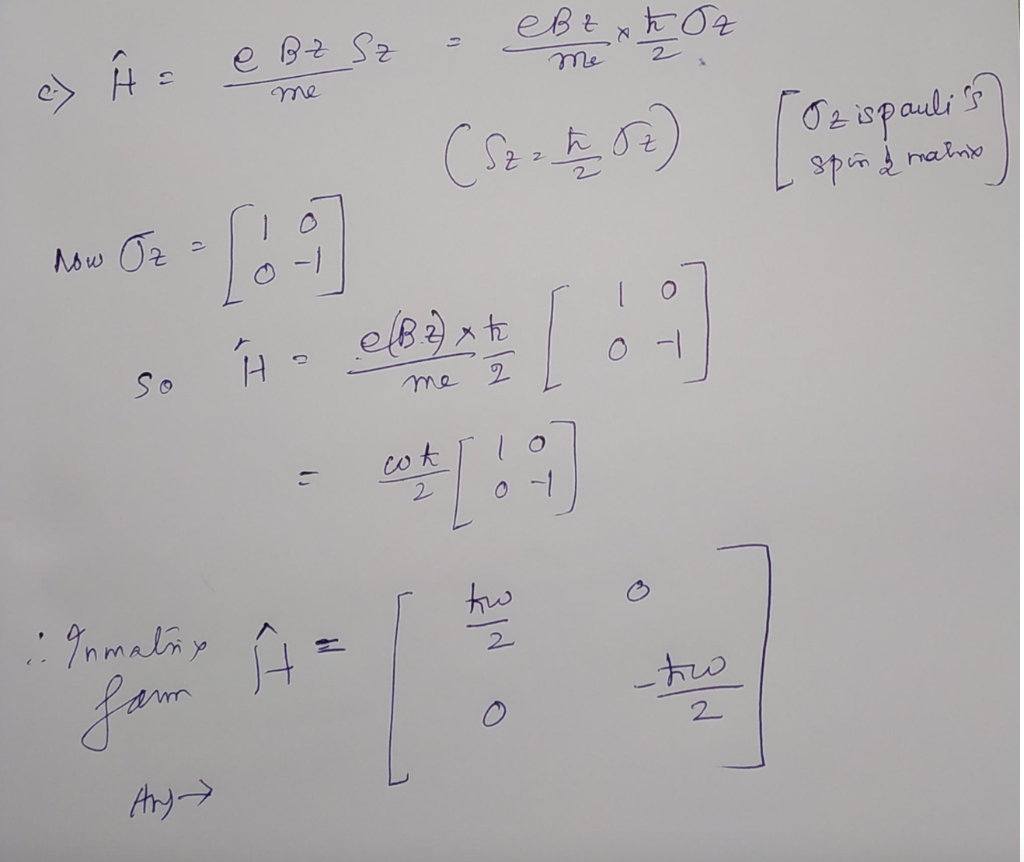 c> Ĥ = e Bz Sz / me = eBz / me × ħ/2 σz
(Sz = ħ/2 σz) [σz is pauli's spin ½ matrix]
Now σz = [1 0 0 -1]
So Ĥ = e(Bz) × ħ / me 2 [1 0 0 -1]
= ωħ/2 [1 0 0 -1]
∴ In matrix form Ĥ = [ħω/2 0 0 -ħω/2]
Ans →